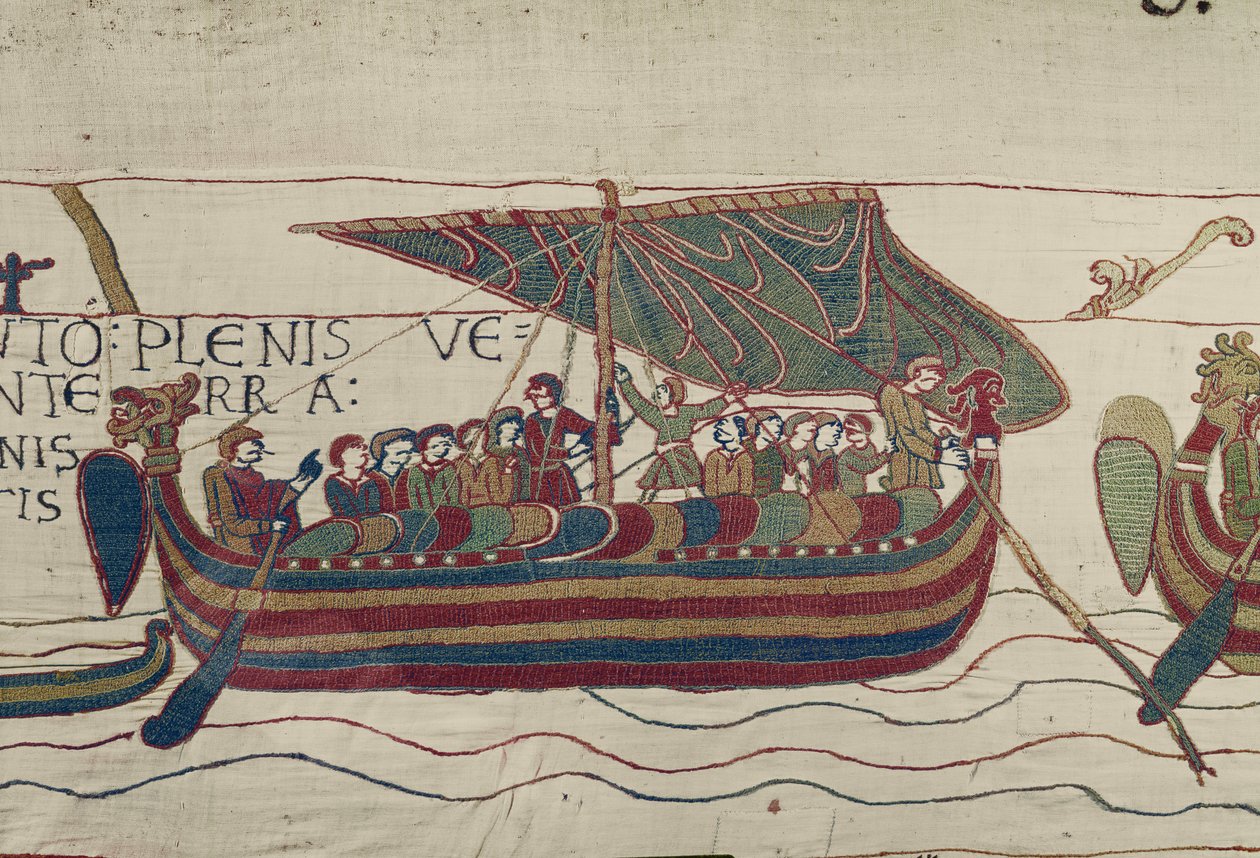 VTO: PLENIS VE=
NTE RR A:
NIS
TIS